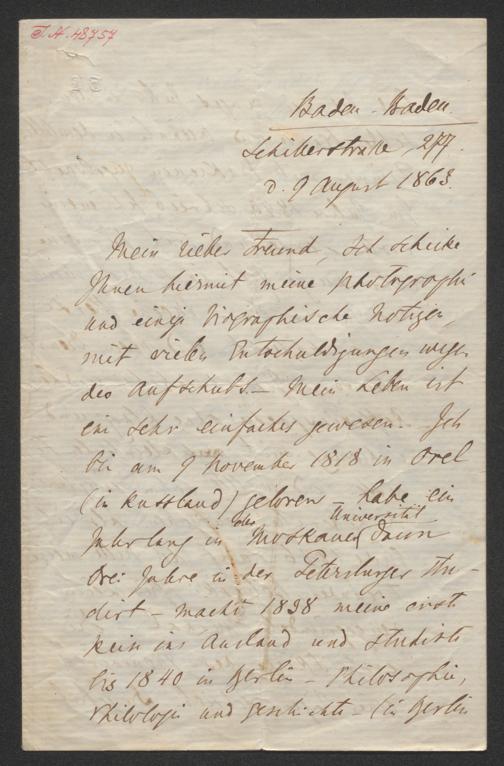 T.N. 48757
Baden-Baden.
Schillerstrasse, 277.
d. 9 August 1863.
Mein lieber Freund, Ich schicke
Ihnen hiermit meine photographie
und einige biographische Notizen,
mit vielen Entschuldigungen wegen
des Aufschubs. – Mein Leben ist
ein sehr einfaches gewesen. Ich
bin am 9 November 1818 in Orel
(in Russland) geboren – habe ein
Jahr lang in der Moskauer Universität dann
drei Jahre in der Petersburger stu-
dirt – machte 1838 meine erste
Reise ins Ausland und studirte
bis 1840 in Berlin – Philosophie,
Philologie und Geschichte – (in Berlin